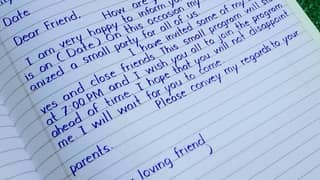 Date
Dear Friend. How are y
I am very happy to inform you
is on (Date) On this occasion my
anized a small party for all of us
I have invited some of my
ves and close friends. This small program will start
at 7.00 PM and I wish you all to join the program
ahead of time. I hope that you will not disappoint
me. I will wait for you to come.
Please convey my regards to your
parents.
loving friend,